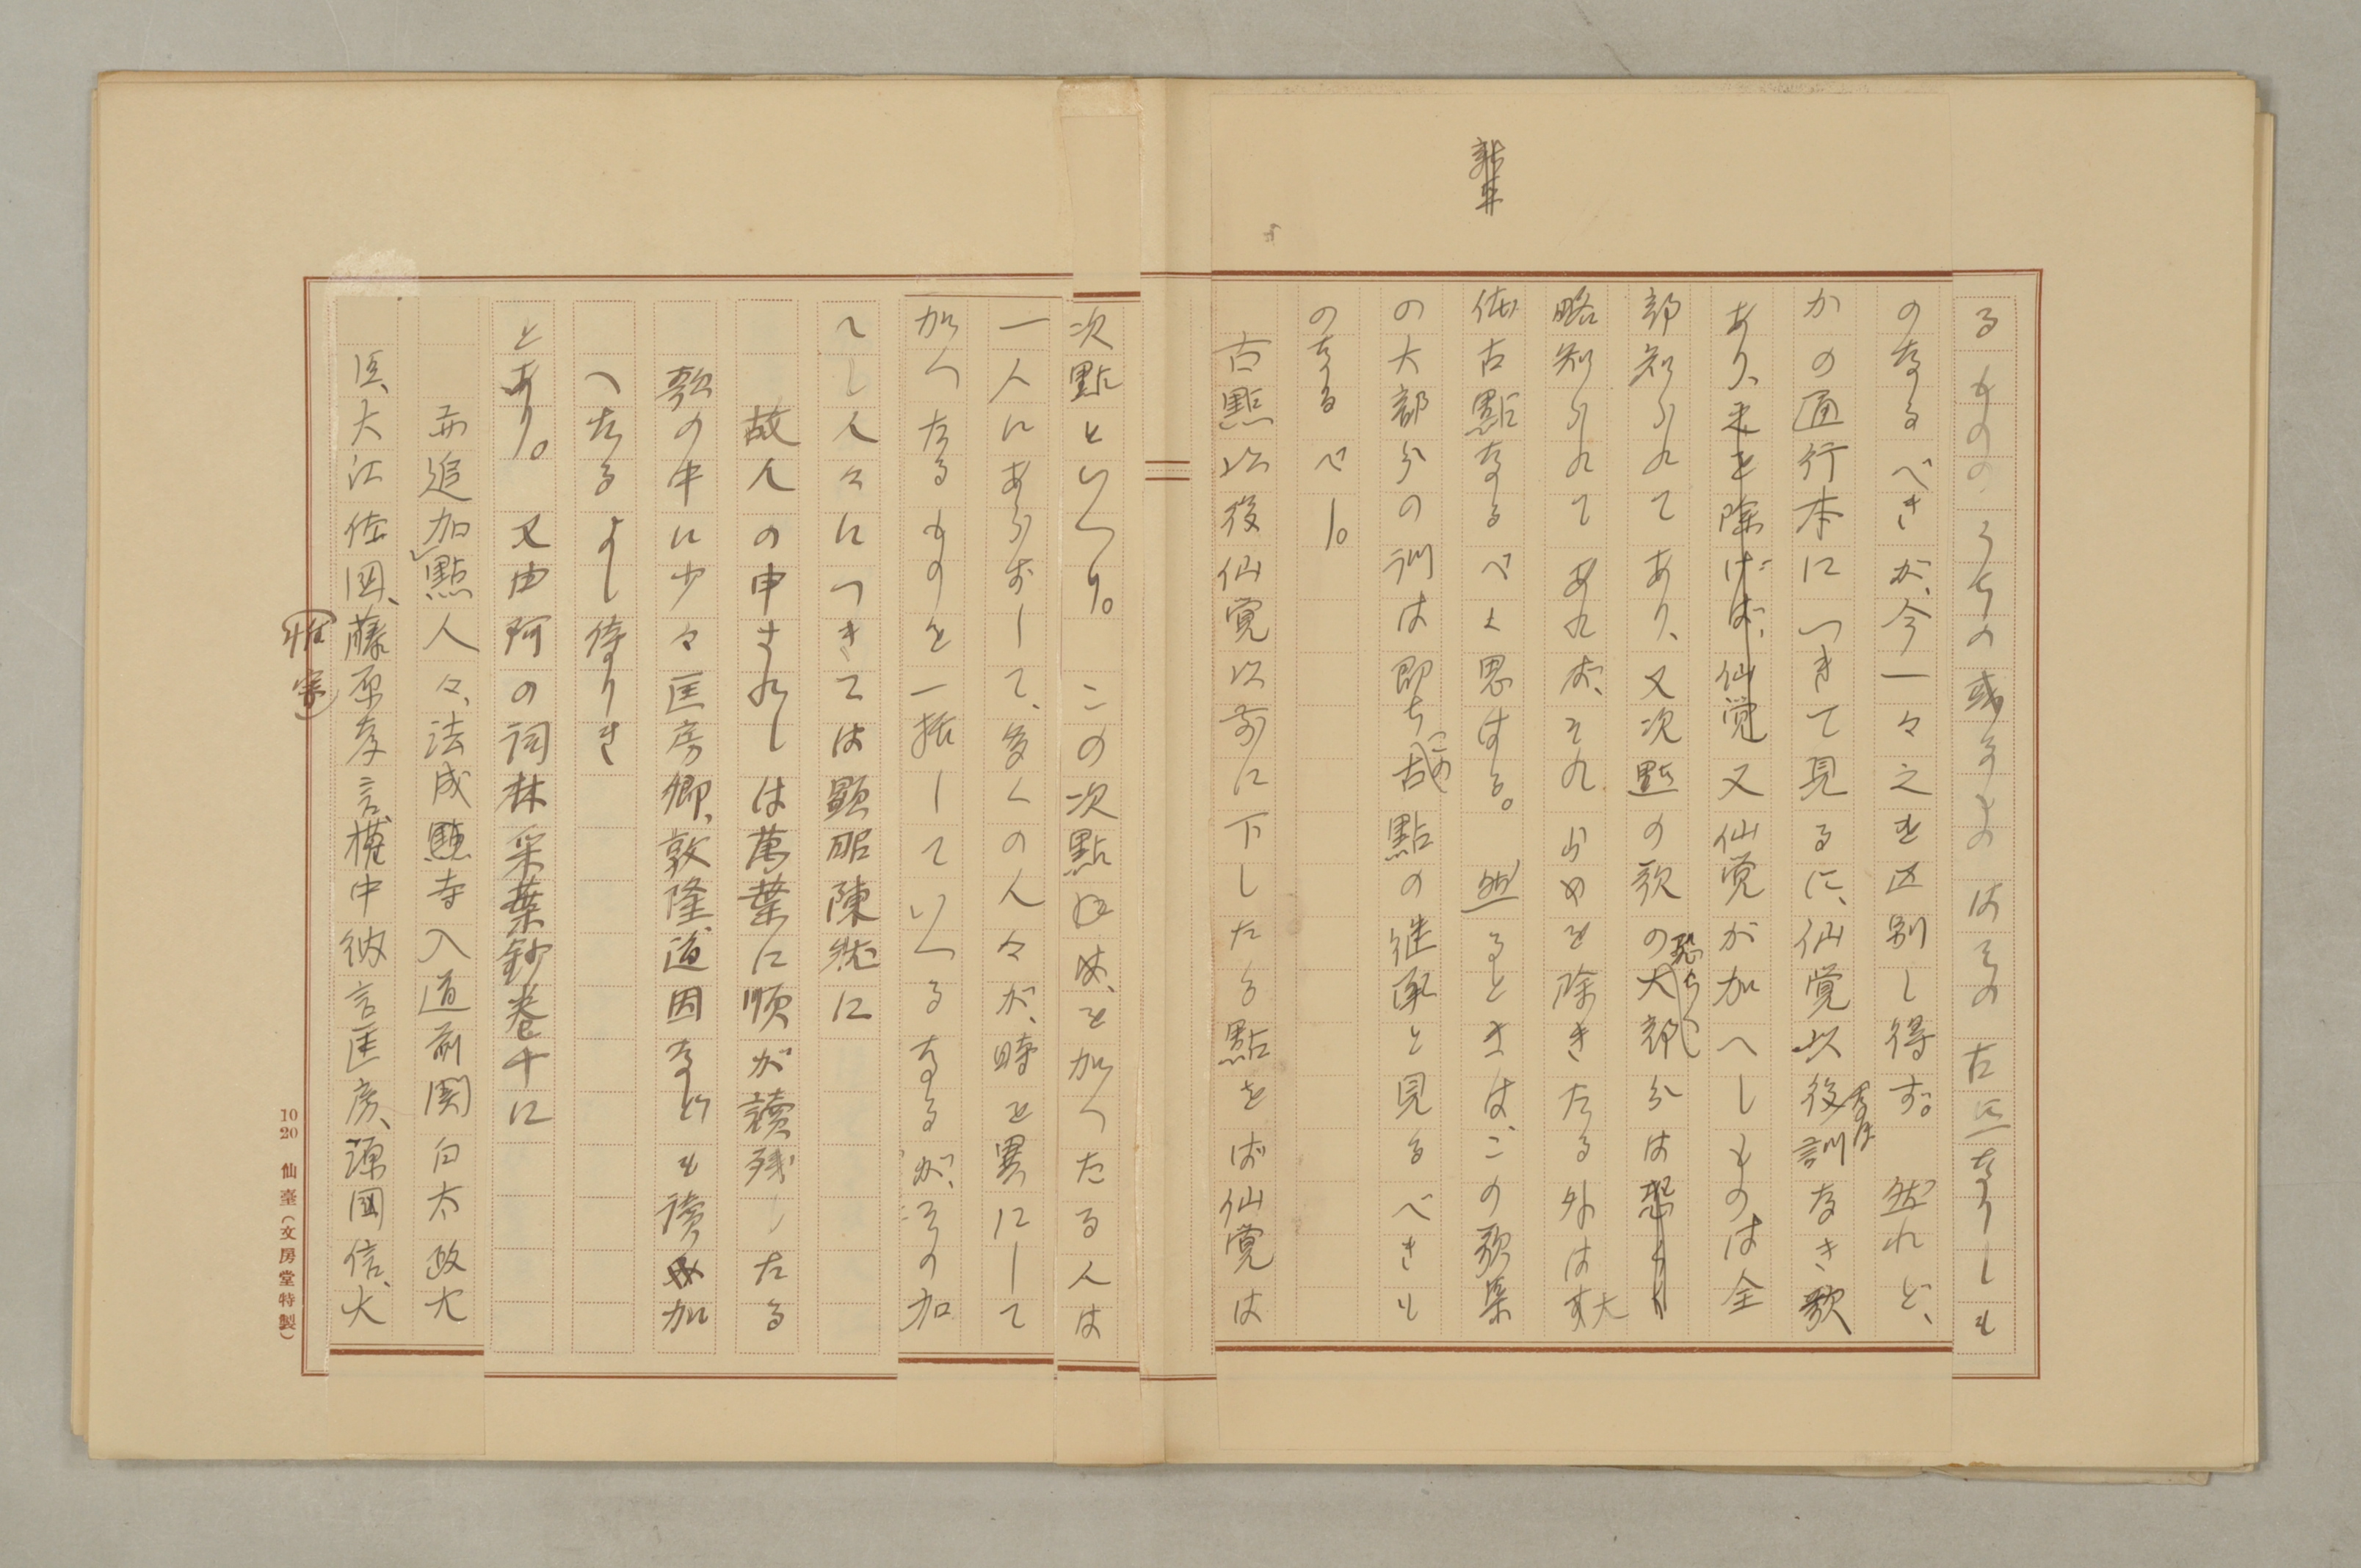 るもののうちの或るものはその古点なりしも
のなるべきが、今一々之を区別し得ず。然れど、
かの通行本につきて見るに、仙覚以後なほ訓なき歌
あり、又仙覚が加へしものは全
部知られてあり、又次點の歌の恐らく大部分は
略知られてあれば、それらのを除きたる外は大
体古點なるべく思はる。然るときは、この歌集
の大部分の訓は即ちこの點の継承と見るべきも
のなるべし。
古點以後仙覚以前に下したる點をば仙覚は
次點といへり。この次點は、を加へたる人は
一人にあらずして、多くの人々が、時を異にして
加へたるものを一括していへるなるが、その加
へし人々につきては顕昭陳状に
故人の申されしは萬葉に順が讀残したる
歌の中に少々匡房卿、敦隆、道因なども讀加
へたるよし侍りき
とあり。又由阿の詞林采葉鈔巻十に
亦追加點人々、法成寺入道前関白太政大
臣、大江佐国、藤原孝言、権中納言匡房、源國信、大
(惟宗)
10 20 仙臺(文房堂特製)